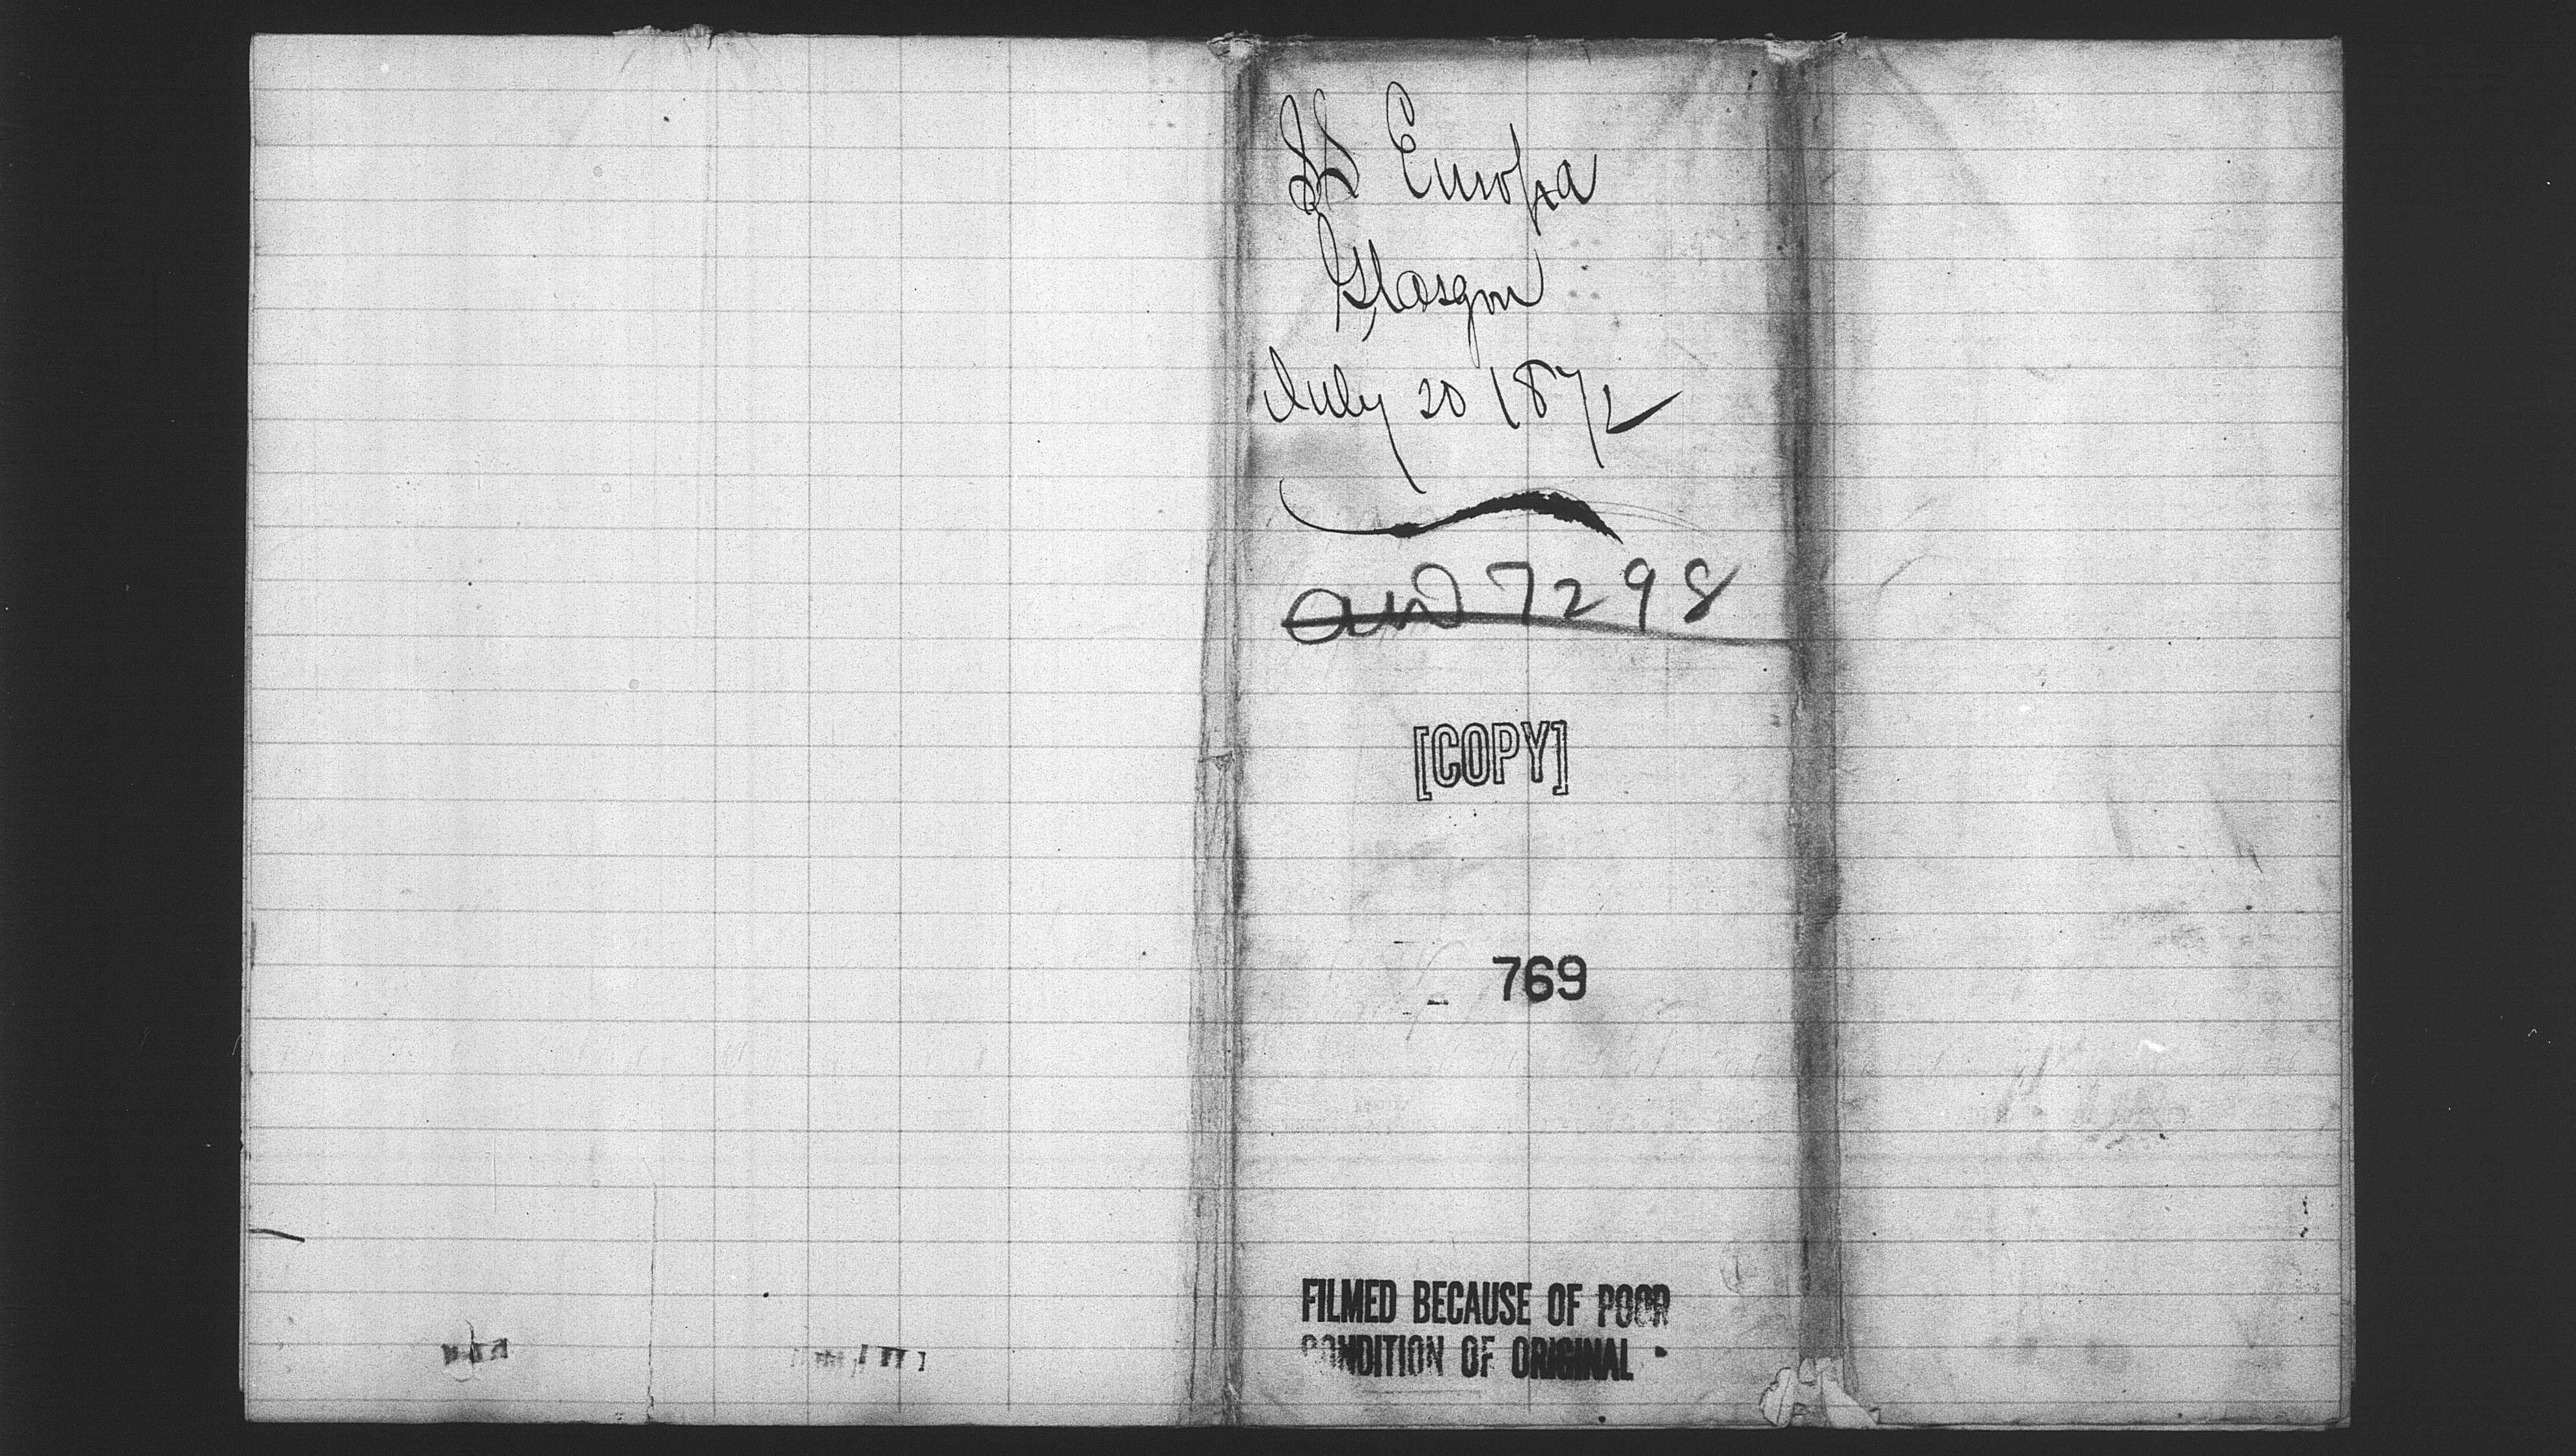 SS Europa
Glasgow
July 20 1872
7298
[COPY]
769
FILMED BECAUSE OF POOR
CONDITION OF ORIGINAL